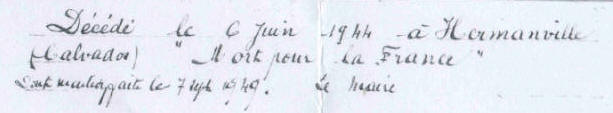 Décédé le 6 Juin 1944 à Hermanville
(Calvados) "Mort pour la France"
Dont mention faite le 7 sept 1949. Le Maire